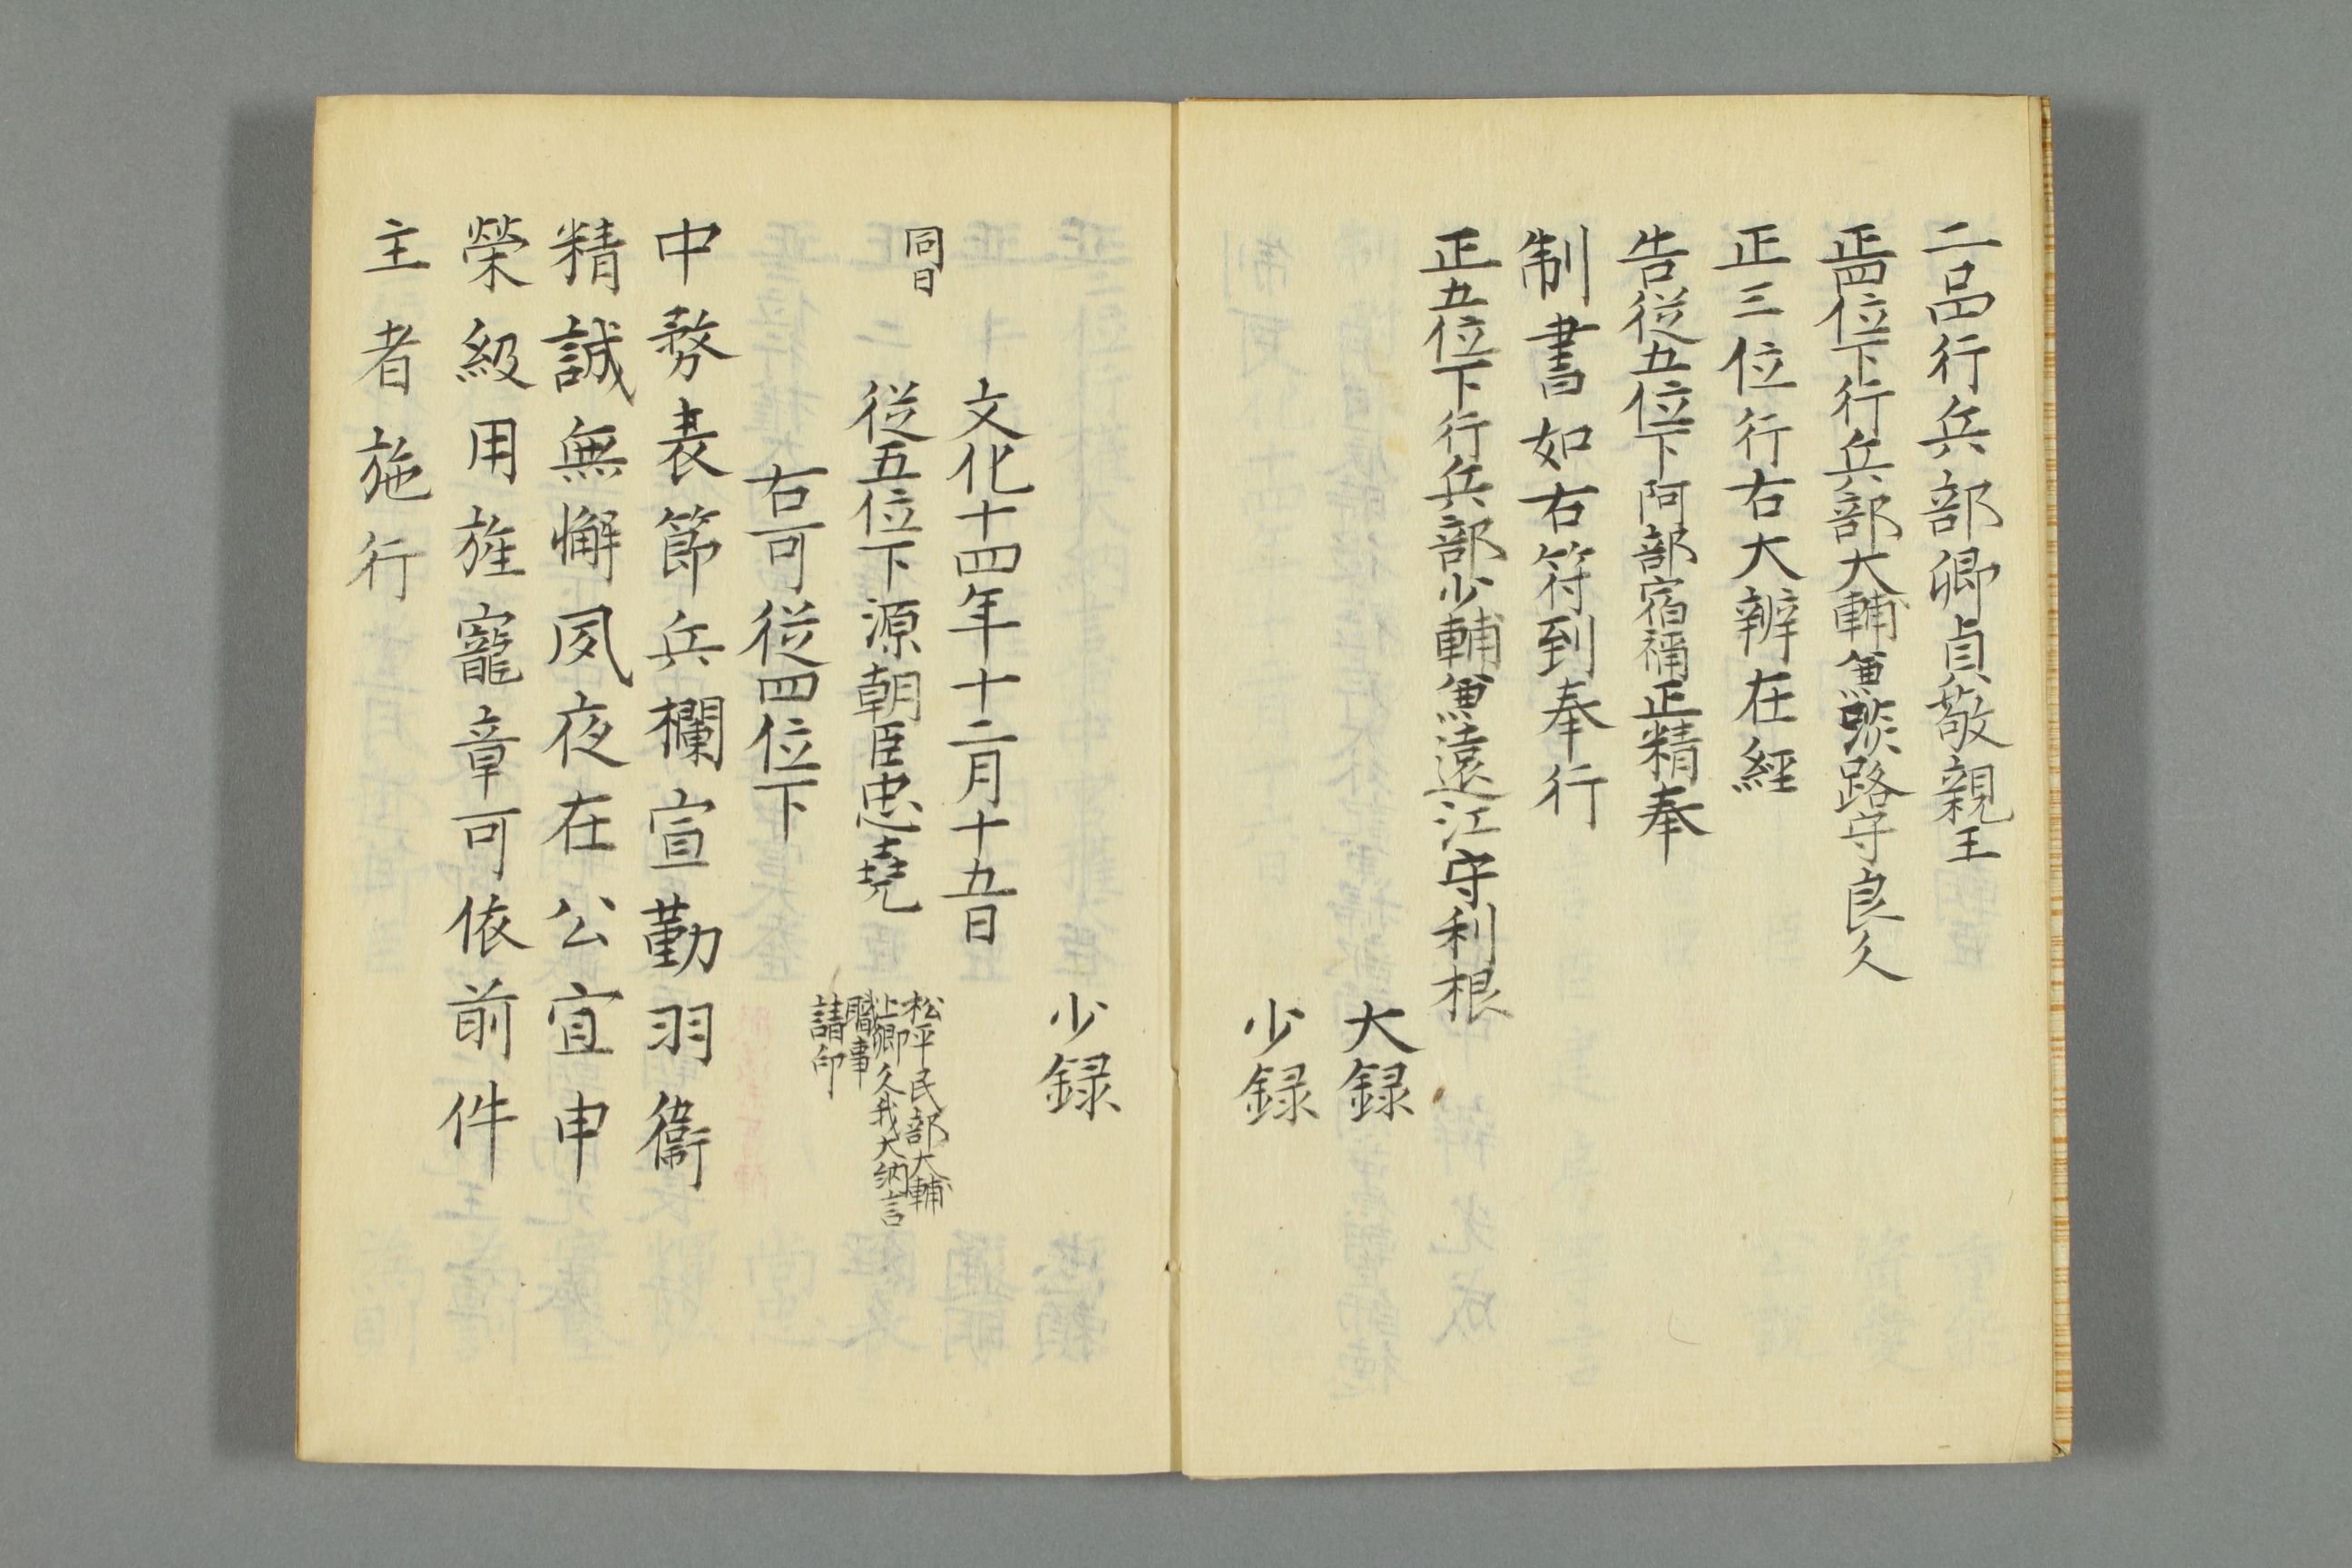 二品行兵部卿貞敬親王
正四位下行兵部大輔兼淡路守良久
正三位行右大辨在經
告從五位下阿部宿祢正精奉
制書如右符到奉行
正五位下行兵部少輔兼遠江守利根
大録
少録
少録
文化十四年十二月十五日
同日
從五位下源朝臣忠堯
松平民部大輔
上卿久我大納言
職事
請印
右可從四位下
中務表節兵欄宣勤羽衞
精誠無懈夙夜在公宜申
榮級用旌寵章可依前件
主者施行